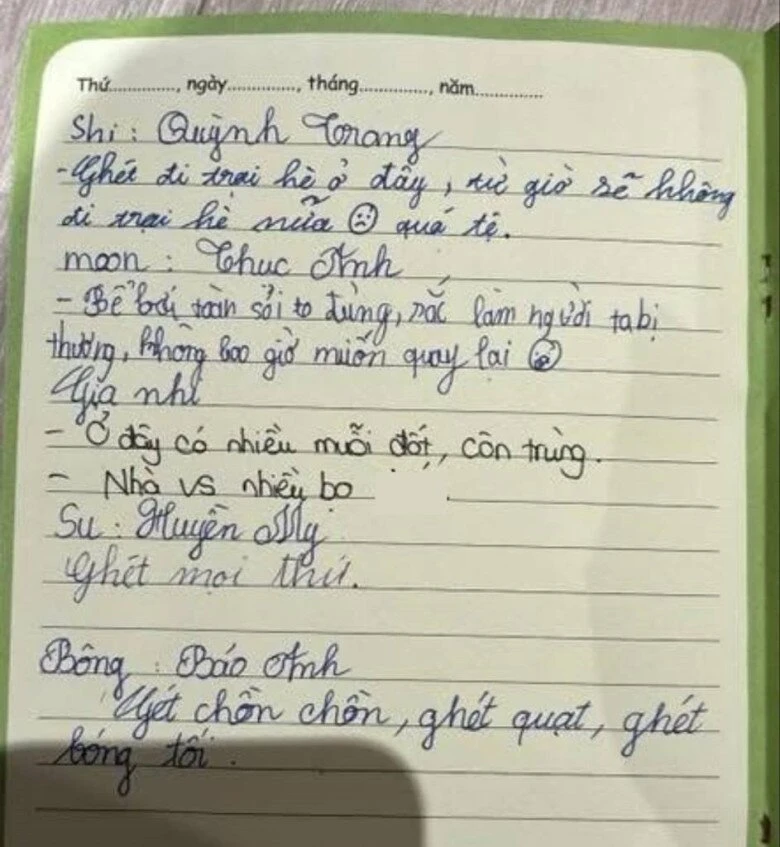 Thứ............, ngày............, tháng............, năm............
Shi : Quỳnh Trang
- Ghét đi trại hè ở đây, từ giờ sẽ không
đi trại hè nữa ☹ quá tệ.
moon : Thục Anh
- Bể bơi toàn sỏi to đùng, rác làm người ta bị
thương, không bao giờ muốn quay lại
Gia nhi
- Ở đây có nhiều muỗi đốt, côn trùng.
- Nhà vs nhiều bọ
Su : Huyền My
Ghét mọi thứ.
Bông : Bảo Anh
Ghét chồn chồn, ghét quạt, ghét
bóng tối.